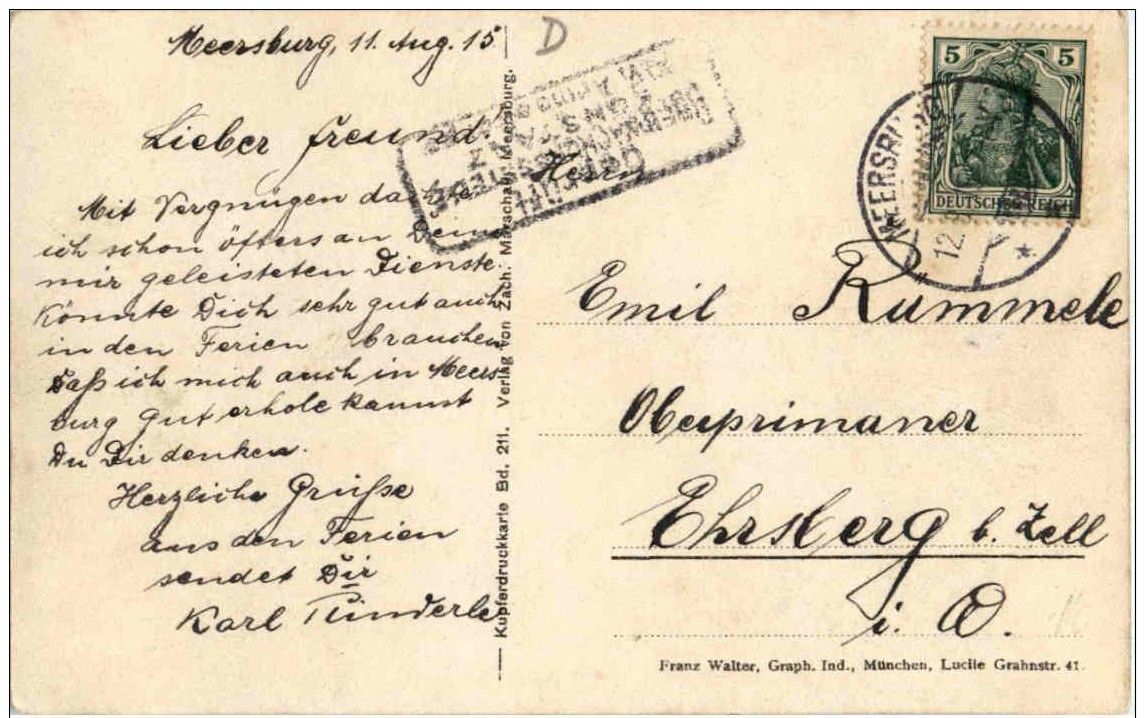 Meersburg, 11. Aug. 15
Lieber Freund!
Mit Vergnügen dachte
ich schon öfters an Deine
mir geleisteten Dienste.
Könnte Dich sehr gut auch
in den Ferien brauchen.
Daß ich mich auch in Meers-
burg gut erhole kannst
Du Dir denken.
Herzliche Grüße
aus den Ferien
sendet Dir
Karl
Kupferdruckkarte Bd. 211. Verlag von Zach. Marschall, Meersburg.
D
5 5
DEUTSCHES REICH
MEERSBURG
12.
Herrn
Emil Rummele
Oberprimaner
Ehrsberg b. Zell
i. W.
Franz Walter, Graph. Ind., München, Lucile Grahnstr. 41.